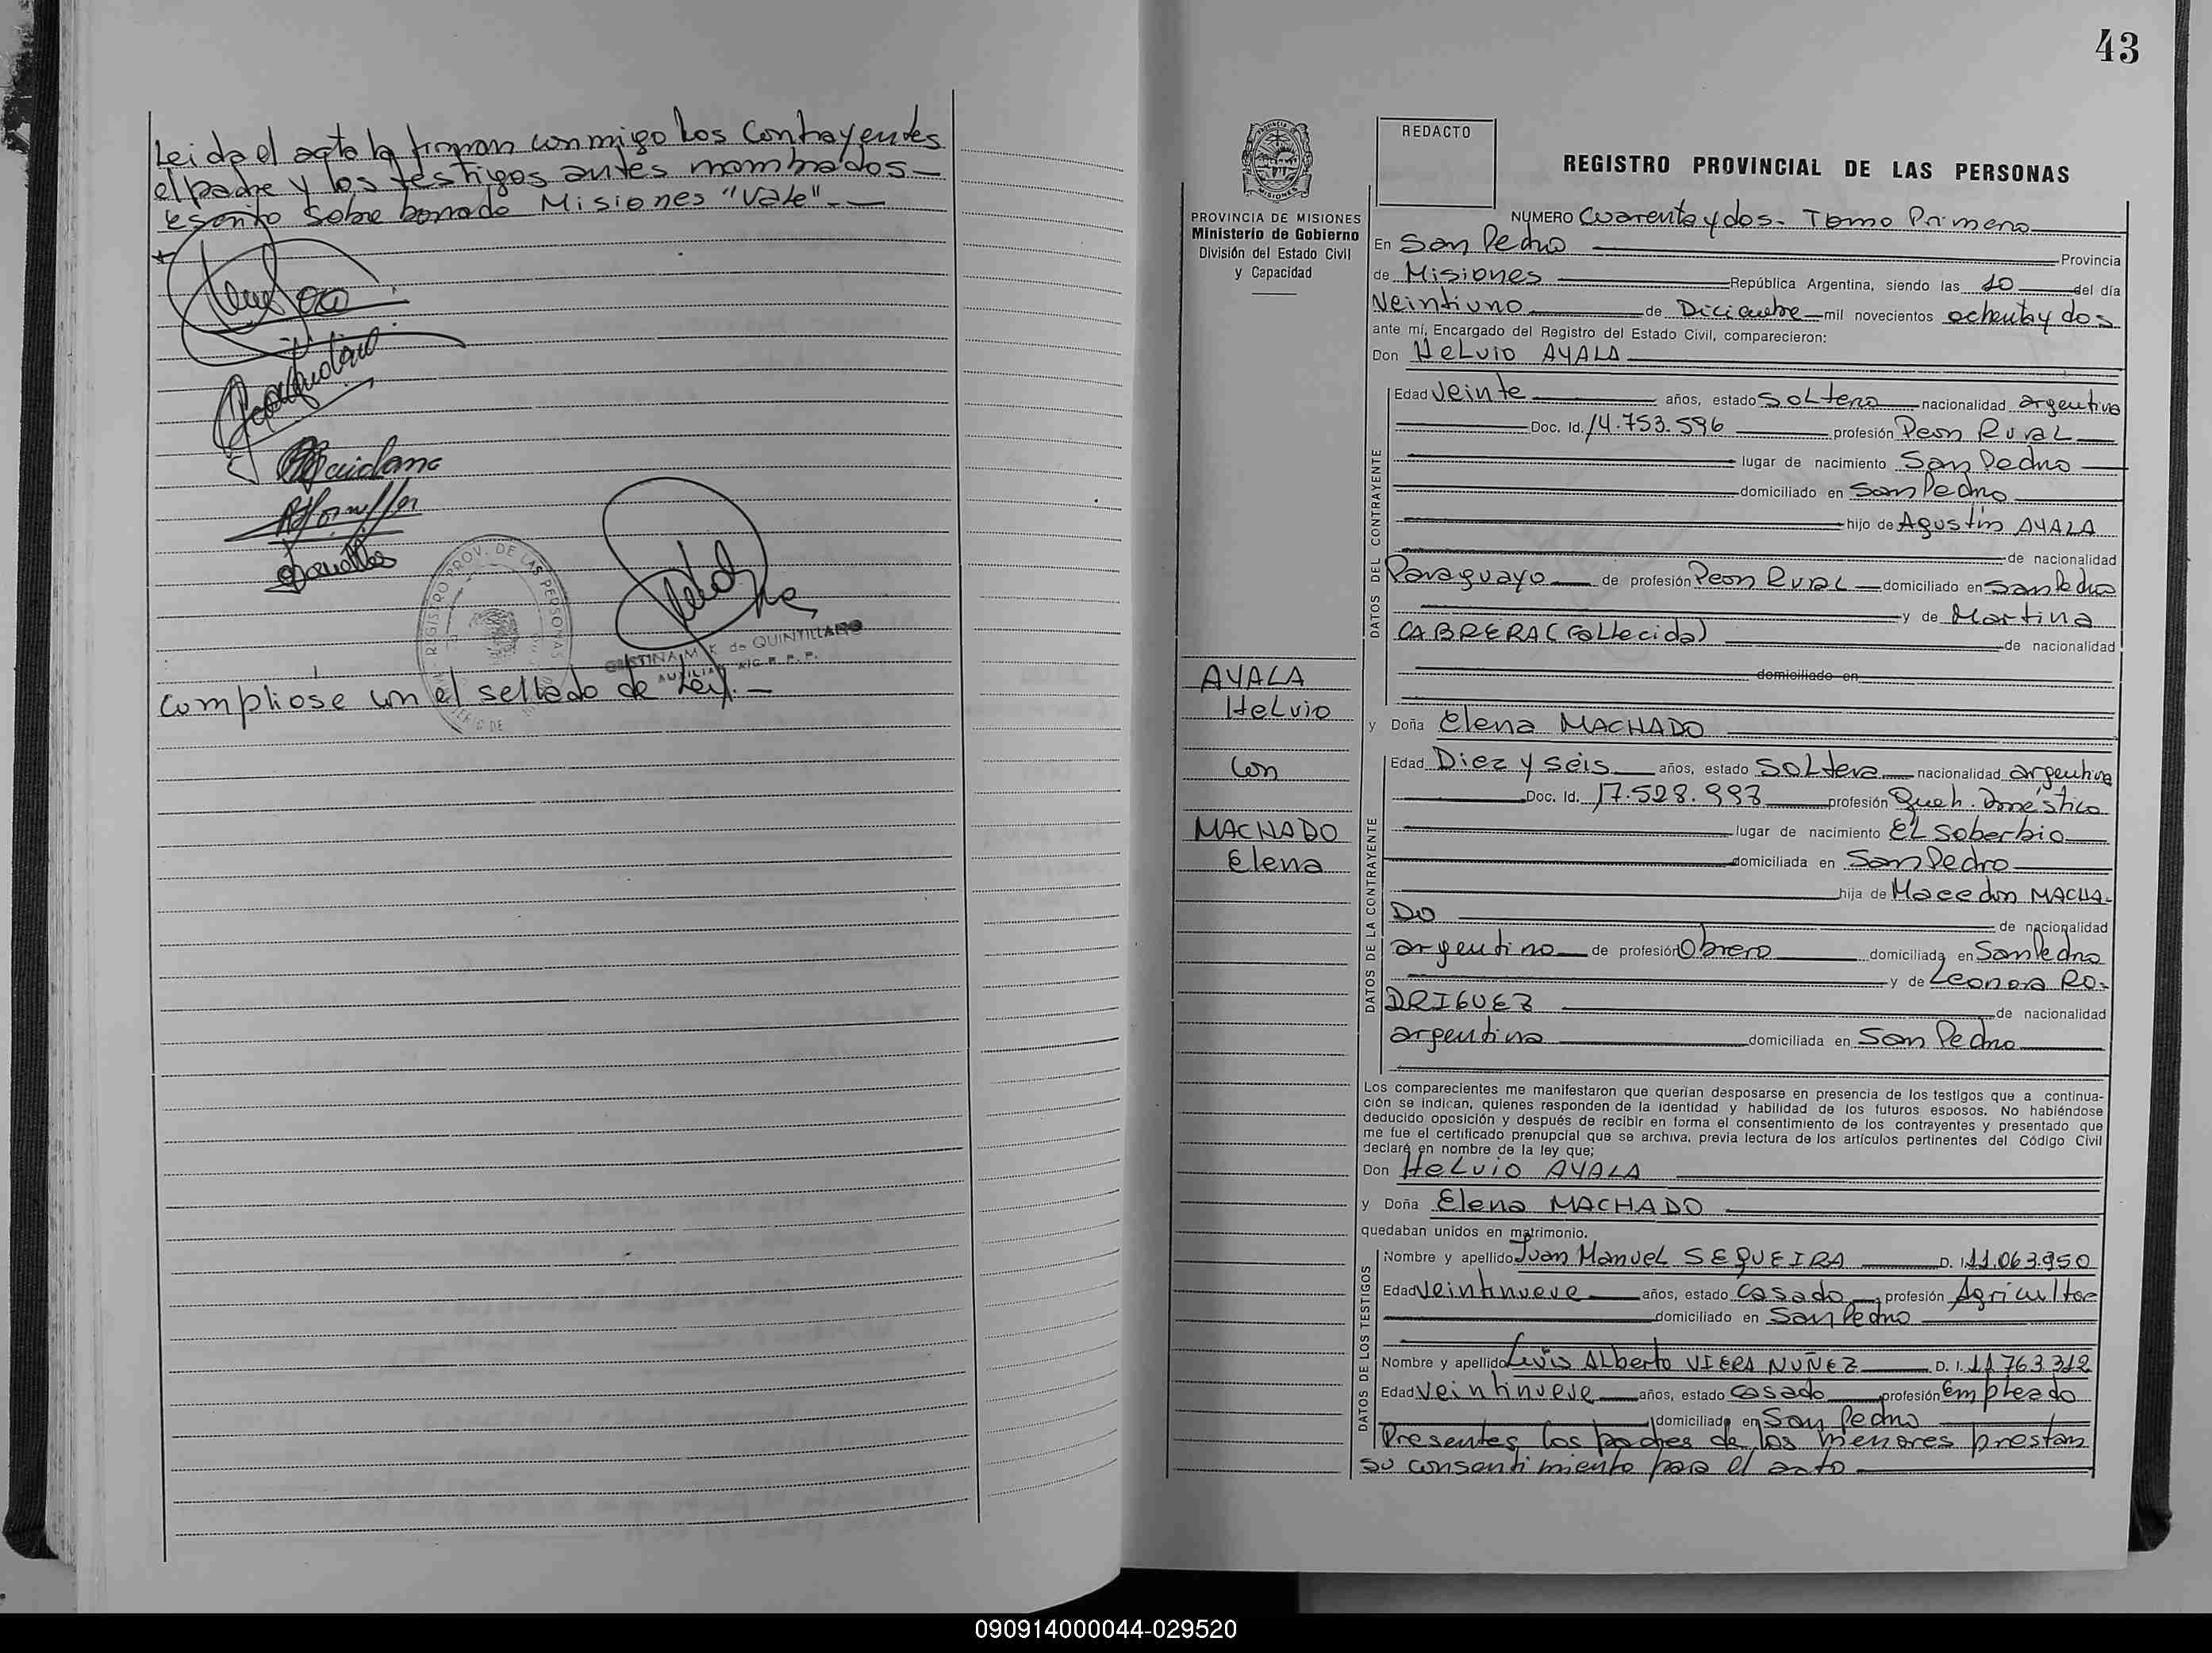 Leida el acta la firman conmigo los Contrayentes
el padre y los testigos antes nombrados.—
escrito sobre borrado Misiones "Vale".—
REGISTRO PROV. DE LAS PERSONAS
CRISTINA M. K. de QUINTILLANO
AUXILIAR
cumpliose con el sellado de Ley.—
43
REDACTO
REGISTRO PROVINCIAL DE LAS PERSONAS
MISIONES
PROVINCIA DE MISIONES
Ministerio de Gobierno
División del Estado Civil
y Capacidad
NUMERO Cuarenta y dos. Tomo Primero
En San Pedro Provincia
de Misiones República Argentina, siendo las 10 del día
Veintiuno de Diciembre mil novecientos ochenta y dos
ante mí, Encargado del Registro del Estado Civil, comparecieron:
Don HeLvio AYALA
DATOS DEL CONTRAYENTE
Edad Veinte años, estado SoLtero nacionalidad argentina
Doc. Id. 14.753.596 profesión Peon RuraL
lugar de nacimiento San Pedro
domiciliado en San Pedro
hijo de Agustín AYALA
de nacionalidad
Paraguayo de profesión Peon RuraL domiciliado en San Pedro
y de Martina
CABRERA (faLLecida)
de nacionalidad
domiciliado en
AYALA
HeLvio
con
MACHADO
Elena
y Doña Elena MACHADO
DATOS DE LA CONTRAYENTE
Edad Diez y séis años, estado SoLtera nacionalidad argentina
Doc. Id. 17.528.993 profesión Queh. Doméstico
lugar de nacimiento EL Soberbio
domiciliada en San Pedro
hija de Macedon MACHA-
DO
de nacionalidad
argentino de profesión Obrero domiciliada en San Pedro
y de Leonora RO-
DRIGUEZ
de nacionalidad
argentina domiciliada en San Pedro
Los comparecientes me manifestaron que querían desposarse en presencia de los testigos que a continua-
ción se indican, quienes responden de la identidad y habilidad de los futuros esposos. No habiéndose
deducido oposición y después de recibir en forma el consentimiento de los contrayentes y presentado que
me fue el certificado prenupcial que se archiva, previa lectura de los artículos pertinentes del Código Civil
declaré en nombre de la ley que;
Don HeLvio AYALA
y Doña Elena MACHADO
quedaban unidos en matrimonio.
DATOS DE LOS TESTIGOS
Nombre y apellido Juan ManueL SEQUEIRA D. I. 11.063.950
Edad Veintinueve años, estado casado profesión Agricultor
domiciliado en San Pedro
Nombre y apellido Luis ALberto VIERA NUÑEZ D. I. 11.763.312
Edad Veintinueve años, estado casado profesión Empleado
domiciliado en San Pedro
Presentes los padres de los menores prestan
su consentimiento para el acto
090914000044-029520